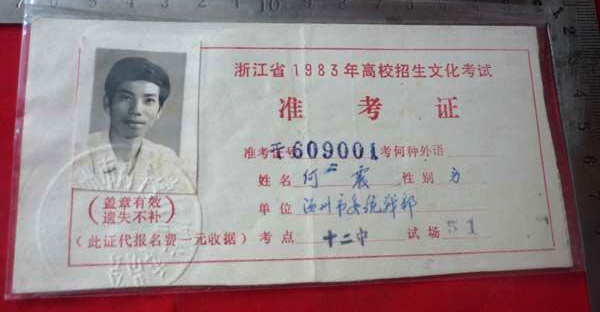 浙江省1983年高校招生文化考试
准考证
准考证号 干609001 考何种外语
姓名 何震 性别 男
单位 温州市委统战部
(盖章有效
遗失不补)
(此证代报名费一元收据) 考点 十二中 试场 51